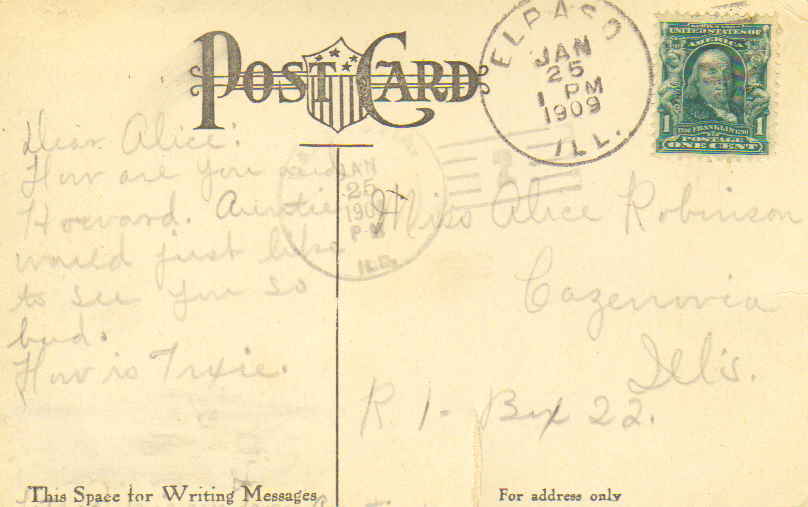 POST CARD
EL PASO
JAN
25
1 PM
1909
ILL.
UNITED STATES OF
AMERICA
FRANKLIN
1 1
POSTAGE
ONE CENT
JAN
25
190
P M
ILL.
2
Dear Alice:
How are you and
Howard. Auntie
would just like
to see you so
bud.
How is Trixie.
Miss Alice Robinson
Cazenovia
Ills.
R 1 - Box 22.
This Space for Writing Messages
For address only